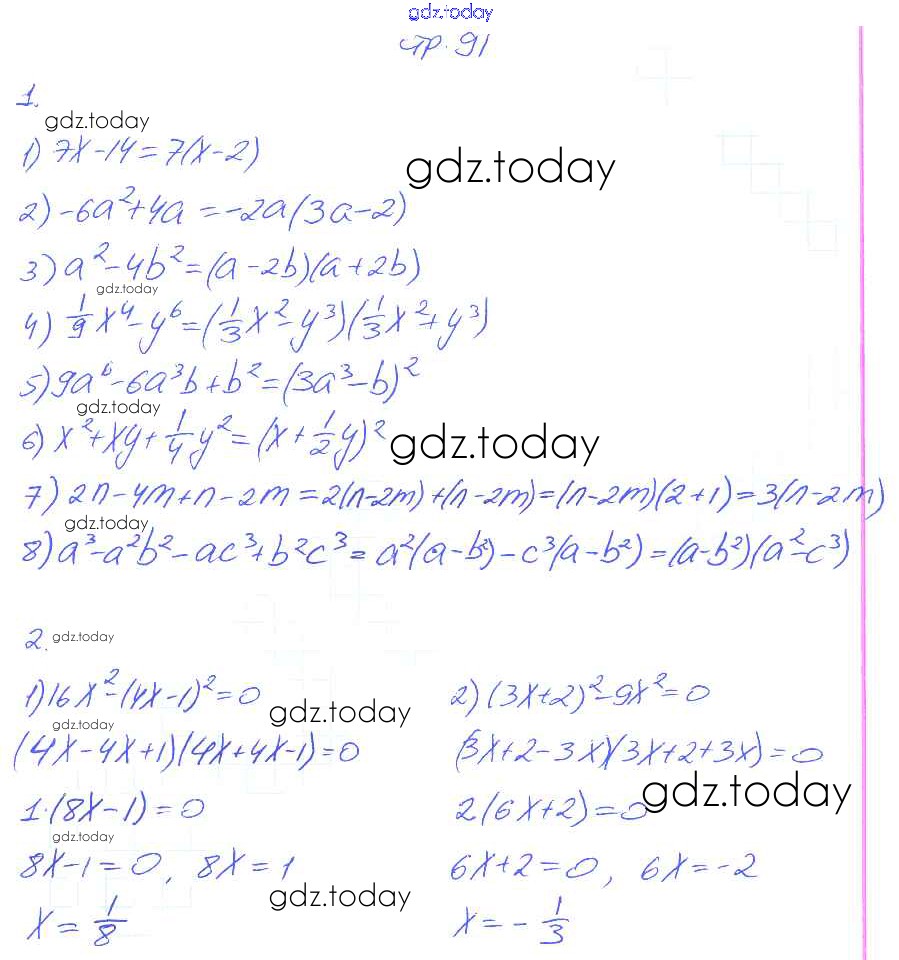 gdz.today
стр. 91
1.
gdz.today
1) 7x-14=7(x-2)
gdz.today
2) -6a²+4a=-2a(3a-2)
3) a²-4b²=(a-2b)(a+2b)
gdz.today
4) 1/9x⁴-y⁶=(1/3x²-y³)(1/3x²+y³)
5) 9a⁶-6a³b+b²=(3a³-b)²
gdz.today
6) x²+xy+1/4y²=(x+1/2y)²
gdz.today
7) 2n-4m+n-2m=2(n-2m)+(n-2m)=(n-2m)(2+1)=3(n-2m)
gdz.today
8) a³-a²b²-ac³+b²c³=a²(a-b²)-c³(a-b²)=(a-b²)(a²-c³)
2.
gdz.today
1) 16x²-(4x-1)²=0
gdz.today
gdz.today
(4x-4x+1)(4x+4x-1)=0
1·(8x-1)=0
gdz.today
8x-1=0, 8x=1
gdz.today
x=1/8
2) (3x+2)²-9x²=0
(3x+2-3x)(3x+2+3x)=0
gdz.today
2(6x+2)=0
6x+2=0, 6x=-2
x=-1/3